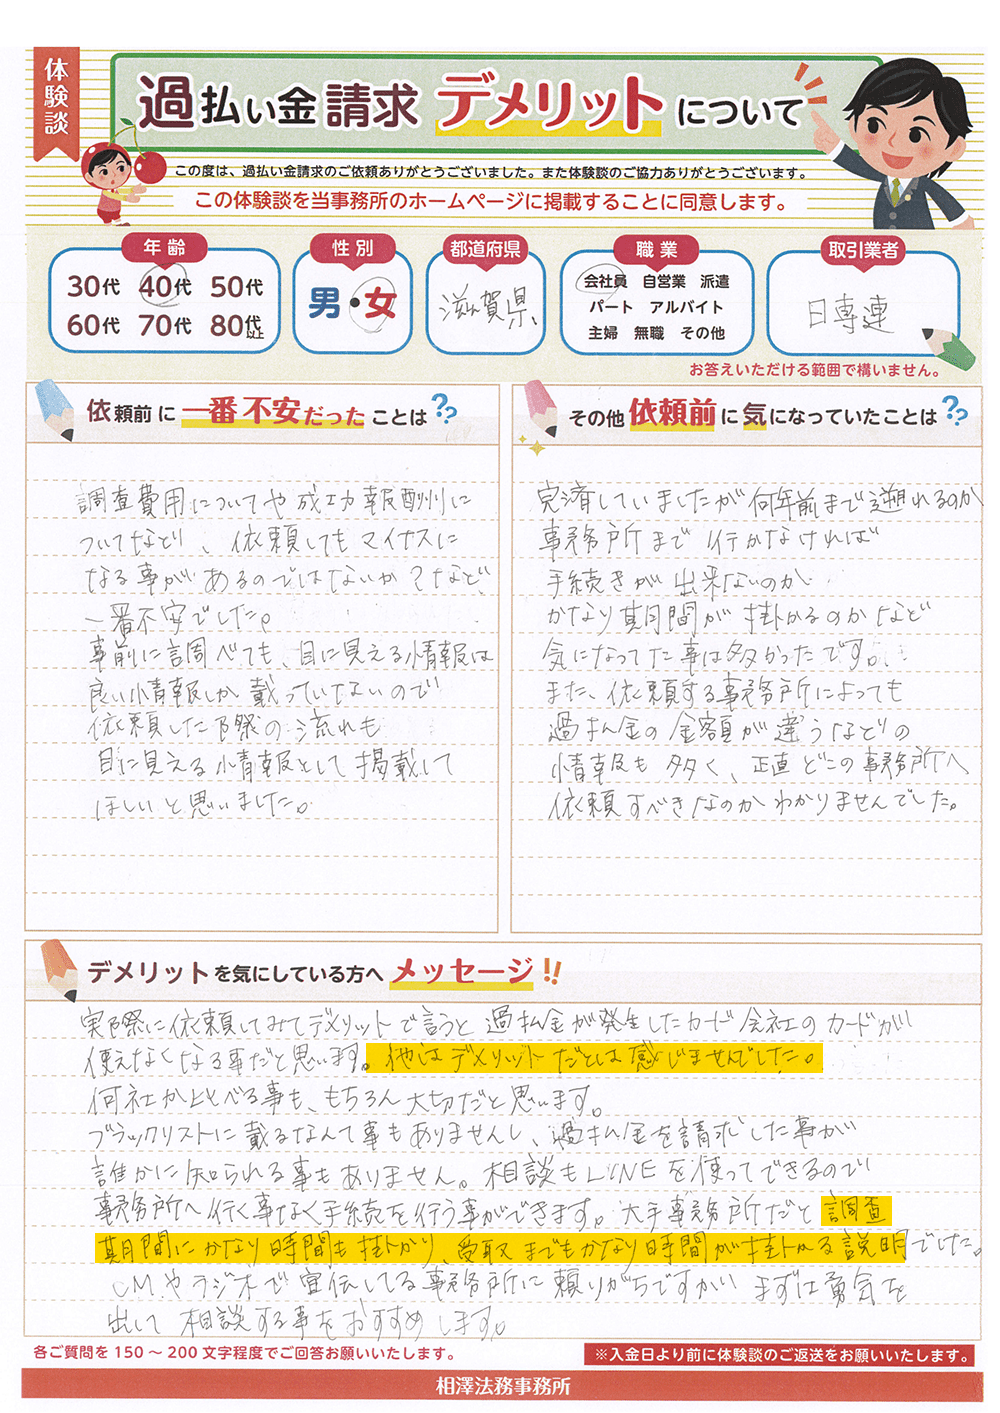 体験談
過払い金請求デメリットについて
この度は、過払い金請求のご依頼ありがとうございました。また体験談のご協力ありがとうございます。
この体験談を当事務所のホームページに掲載することに同意します。
年齢
30代 40代 50代
60代 70代 80代以上
性別
男・女
都道府県
滋賀県
職業
会社員 自営業 派遣
パート アルバイト
主婦 無職 その他
取引業者
日専連
お答えいただける範囲で構いません。
依頼前に一番不安だったことは??
調査費用についてや成功報酬に
ついてなどり、依頼してもマイナスに
なる事があるのではないか?など
一番不安でした。
事前に調べても、目に見える情報は
良い情報しか載っていてないので
依頼した際の流れも
目に見える情報として掲載して
ほしいと思いました。
その他依頼前に気になっていたことは??
完済していましたが何年前まで遡れるのか
事務所まで行かなければ
手続きが出来ないのか
かなり期間が掛かるのかなど
気になってた事は多かったです。
また、依頼する事務所によっても
過払金の金額が違うなどの
情報も多く、正直どこの事務所へ
依頼すべきなのかわかりませんでした。
デメリットを気にしている方へメッセージ!!
実際に依頼してみてデメリットで言うと過払金が発生したカード会社のカードが
使えなくなる事だと思います。他はデメリットだとは感じませんでした。
何社か比べる事も、もちろん大切だと思います。
ブラックリストに載るなんて事もありませんし、過払金を請求した事が
誰かに知られる事もありません。相談もLINEを使ってできるので
事務所へ行く事なく手続を行う事ができます。大手事務所だと調査
期間にかなり時間も掛かり、受取までもかなり時間が掛かる説明でした。
CMやラジオで宣伝してる事務所に頼りがちですがまずは勇気を
出して相談する事をおすすめします。
各ご質問を150～200文字程度でご回答お願いいたします。
※入金日より前に体験談のご返送をお願いいたします。
相澤法務事務所